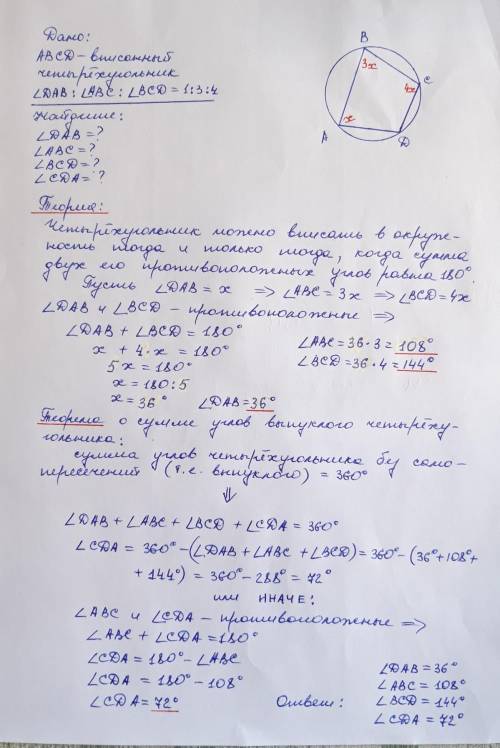 Дано:
ABCD - вписанный
четырёхугольник
∠DAB : ∠ABC : ∠BCD = 1:3:4
Найдите:
∠DAB = ?
∠ABC = ?
∠BCD = ?
∠CDA = ?
B
3x
C
4x
x
A
D
Теорма:
Четырёхугольник можно вписать в окруж-
ность тогда и только тогда, когда сумма
двух его противоположных углов равна 180°.
Пусть ∠DAB = x ⇒ ∠ABC = 3x ⇒ ∠BCD = 4x
∠DAB и ∠BCD - противоположные ⇒
∠DAB + ∠BCD = 180°
x + 4·x = 180°
5x = 180°
x = 180:5
x = 36° ∠DAB = 36°
∠ABC = 36·3 = 108°
∠BCD = 36·4 = 144°
Теорема о сумме углов выпуклого четырёху-
гольника:
сумма углов четырёхугольника без само-
пересечений (т.е. выпуклого) = 360°
⇓
∠DAB + ∠ABC + ∠BCD + ∠CDA = 360°
∠CDA = 360° - (∠DAB + ∠ABC + ∠BCD) = 360° - (36° + 108° +
+ 144°) = 360° - 288° = 72°
или ИНАЧЕ:
∠ABC и ∠CDA - противоположные ⇒
∠ABC + ∠CDA = 180°
∠CDA = 180° - ∠ABC
∠CDA = 180° - 108°
∠CDA = 72°
Ответ:
∠DAB = 36°
∠ABC = 108°
∠BCD = 144°
∠CDA = 72°